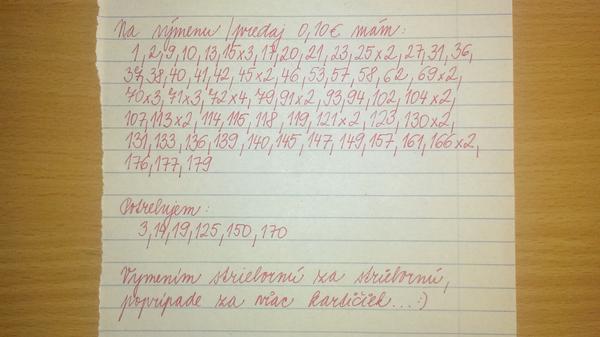 Na výmenu/predaj 0,10€ mám:
1, 2, 9, 10, 13, 15x3, 17, 20, 21, 23, 25x2, 27, 31, 36,
37, 38, 40, 41, 42, 45x2, 46, 53, 57, 58, 62, 69x2,
70x3, 71x3, 72x4, 79, 91x2, 93, 94, 102, 104x2,
107, 113x2, 114, 115, 118, 119, 121x2, 123, 130x2,
131, 133, 136, 139, 140, 145, 147, 149, 157, 161, 166x2,
176, 177, 179
Potrebujem:
3, 14, 19, 125, 150, 170
Vymením striebornú za striebornú,
poprípade za viac kartičiek...:)